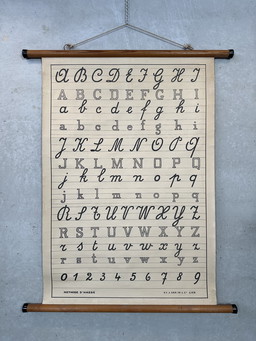 A B C D E F G H I
A B C D E F G H I
a b c d e f g h i
a b c d e f g h i
J K L M N O P Q
J K L M N O P Q
j k l m n o p q
j k l m n o p q
R S T U V W X Y Z
R S T U V W X Y Z
r s t u v w x y z
r s t u v w x y z
0 1 2 3 4 5 6 7 8 9